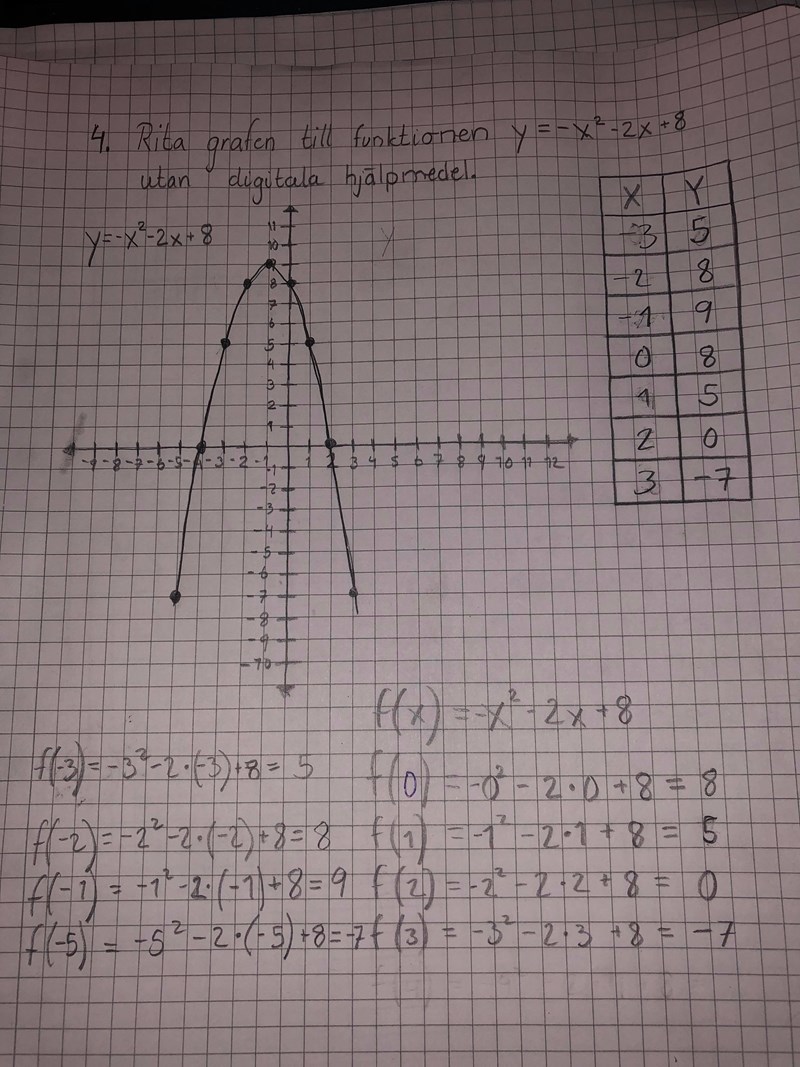 4. Rita grafen till funktionen y = -x² - 2x + 8
utan digitala hjälpmedel.
X Y
-3 5
-2 8
-1 9
0 8
1 5
2 0
3 -7
y=-x²-2x+8
y
11
10
9
8
7
6
5
4
3
2
1
-9 -8 -7 -6 -5 -4 -3 -2 -1 1 2 3 4 5 6 7 8 9 10 11 12
-1
-2
-3
-4
-5
-6
-7
-8
-9
-10
f(x) = -x² - 2x + 8
f(-3) = -3² - 2·(-3) + 8 = 5
f(0) = -0² - 2·0 + 8 = 8
f(-2) = -2² - 2·(-2) + 8 = 8
f(1) = -1² - 2·1 + 8 = 5
f(-1) = -1² - 2·(-1) + 8 = 9
f(2) = -2² - 2·2 + 8 = 0
f(-5) = -5² - 2·(-5) + 8 = -7
f(3) = -3² - 2·3 + 8 = -7